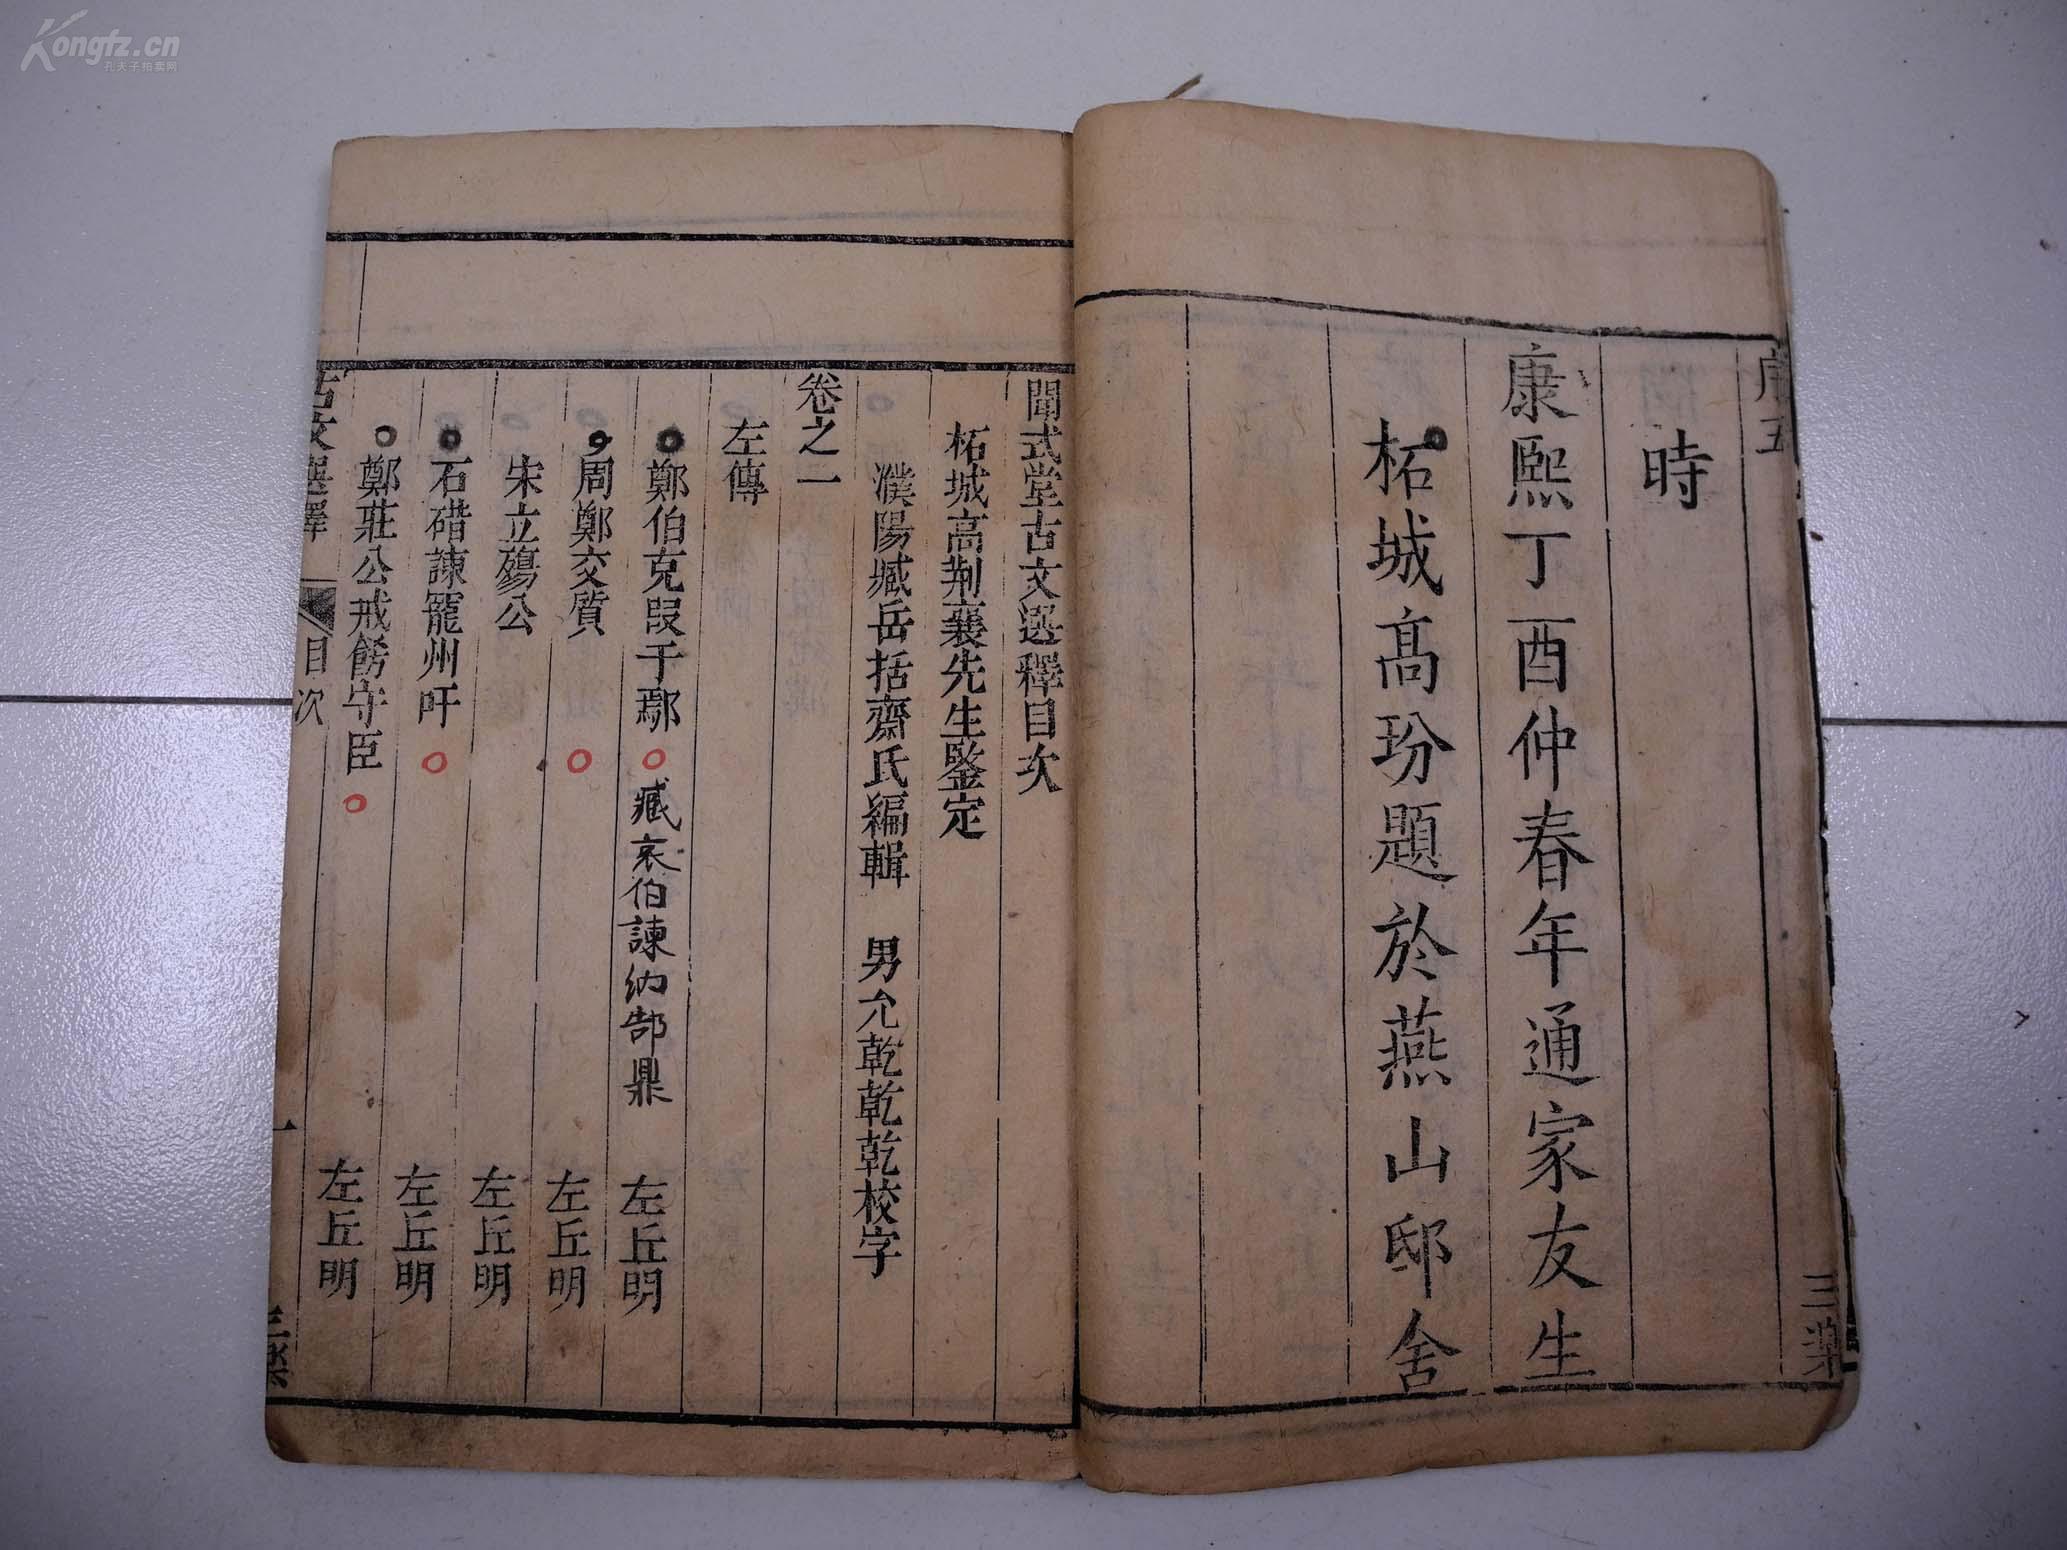 Kongfz.cn
孔夫子拍卖网
序 五
三樂
時
康熙丁酉仲春年通家友生
柘城高玢題於燕山邸舍
聞式堂古文選釋目次
柘城高荆襄先生鑒定
濮陽臧岳括齋氏編輯 男允乾乾乾校字
卷之一
左傳
鄭伯克段于鄢 臧哀伯諫納郜鼎 左丘明
周鄭交質 左丘明
宋立殤公 左丘明
石碏諫寵州吁 左丘明
鄭莊公戒飭守臣 左丘明
古文選釋 目次 一 三樂